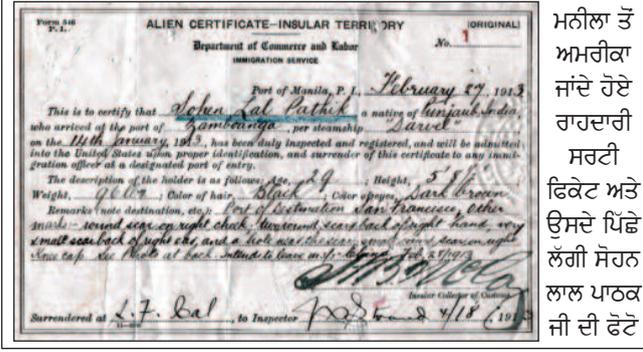 Form 546
P. I.
ALIEN CERTIFICATE—INSULAR TERRITORY
[ORIGINAL]
Department of Commerce and Labor
No. 1
IMMIGRATION SERVICE
Port of Manila, P. I., February 27, 1913
This is to certify that Sohan Lal Pathik a native of Punjaub India,
who arrived at the port of Zamboanga, per steamship "Darvel"
on the 14th January, 1913, has been duly inspected and registered, and will be admitted
into the United States upon proper identification, and surrender of this certificate to any immi-
gration officer at a designated port of entry.
The description of the holder is as follows: Age, 29; Height, 5
Weight, ; Color of hair, Black; Color of eyes, Dark brown
Remarks (note destination, etc.): Port of Destination San Francisco, other
marks - round scar on right cheek, two round scars back of right hand, very
small scar back of right ear, and a small round scar on right
Knee cap. See Photo at back. Intends to leave Feb 28/1913
Insular Collector of Customs
Surrendered at S. F. Cal, to Inspector 4/18, 1913
ਮਨੀਲਾ ਤੋਂ
ਅਮਰੀਕਾ
ਜਾਂਦੇ ਹੋਏ
ਰਾਹਦਾਰੀ
ਸਰਟੀ
ਫਿਕੇਟ ਅਤੇ
ਉਸਦੇ ਪਿੱਛੇ
ਲੱਗੀ ਸੋਹਨ
ਲਾਲ ਪਾਠਕ
ਜੀ ਦੀ ਫੋਟੋ